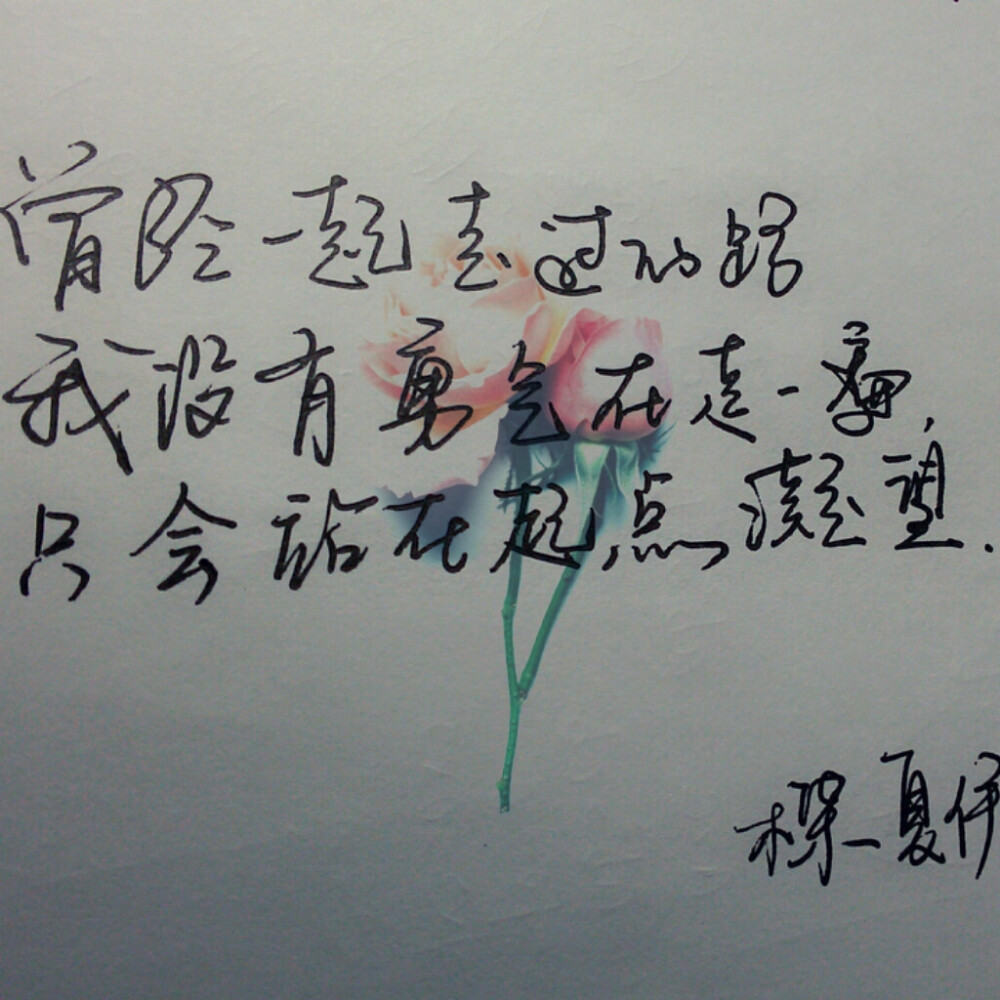 曾经一起走过的路
我没有勇气在走一遍,
只会站在起点凝望.
夏伊